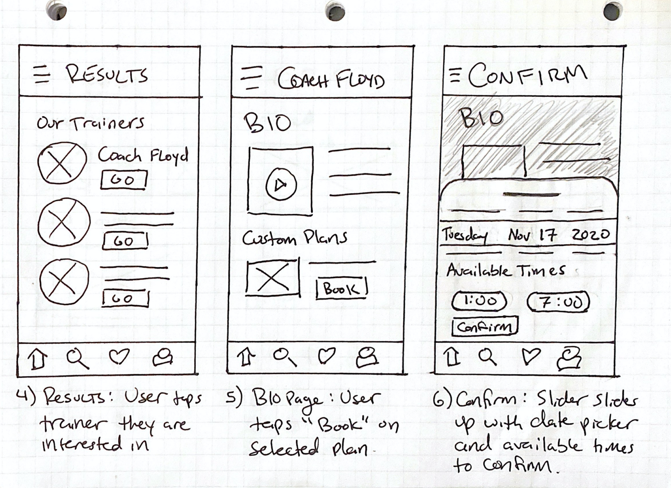 RESULTS
Our Trainers
Coach Floyd
GO
GO
GO
4) Results: User taps
trainer they are
interested in
COACH FLOYD
BIO
Custom Plans
BOOK
5) BIO Page: User
taps "Book" on
Selected plan.
CONFIRM
BIO
Tuesday Nov 17 2020
Available Times
1:00 7:00
Confirm
6) Confirm: Slider slides
up with date picker
and available times
to confirm.